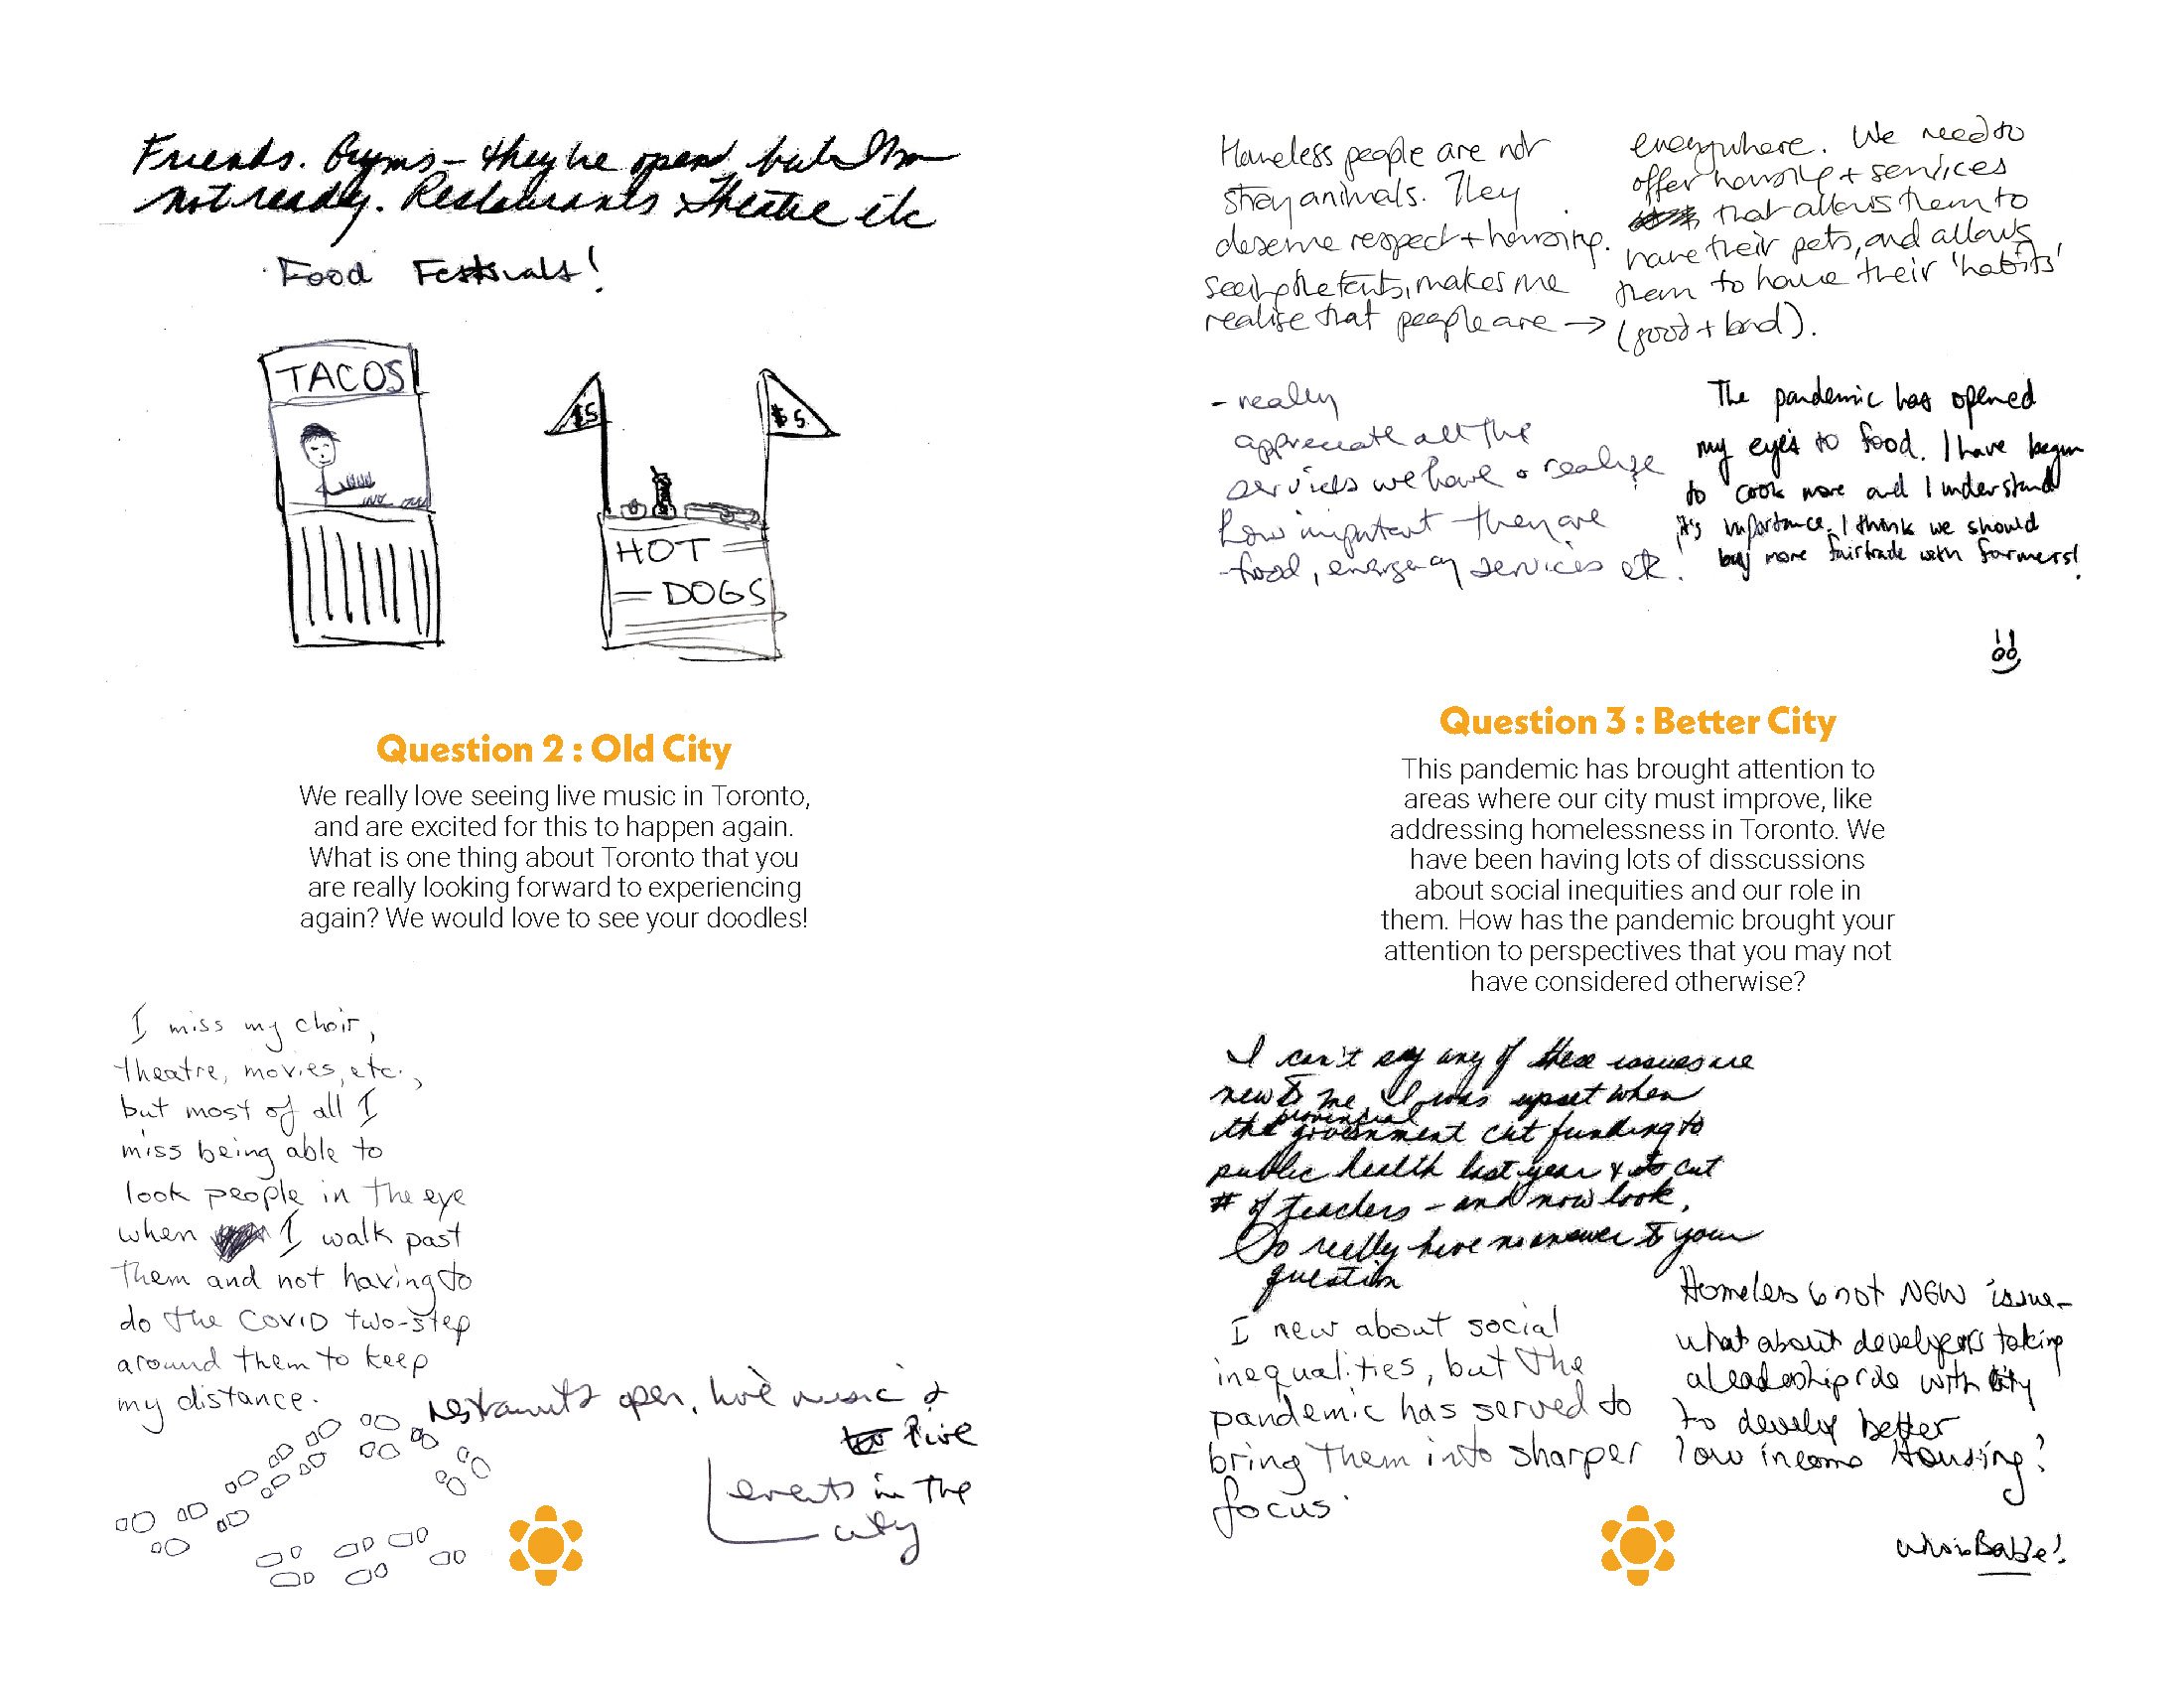 Friends. Gyms - they're open but I'm
not ready. Restaurants & theatre etc
Food Festivals!
TACOS
$5
$5
HOT
DOGS
Question 2 : Old City
We really love seeing live music in Toronto,
and are excited for this to happen again.
What is one thing about Toronto that you
are really looking forward to experiencing
again? We would love to see your doodles!
I miss my choir,
theatre, movies, etc.,
but most of all I
miss being able to
look people in the eye
when I walk past
them and not having to
do the COVID two-step
around them to keep
my distance.
restaurants open, live music &
live
events in the
city
Homeless people are not
stray animals. They
deserve respect + housing.
seeing the tents, makes me
realise that people are →
everywhere. We need to
offer housing + services
that allows them to
have their pets, and allows
them to have their 'habits'
(good + bad).
- really
appreciate all the
services we have & realize
how important they are
- food, emergency services etc.
The pandemic has opened
my eye's to food. I have begun
to cook more and I understand
it's importance. I think we should
buy more fairtrade with farmers!
Question 3 : Better City
This pandemic has brought attention to
areas where our city must improve, like
addressing homelessness in Toronto. We
have been having lots of disscussions
about social inequities and our role in
them. How has the pandemic brought your
attention to perspectives that you may not
have considered otherwise?
I can't say any of these issues are
new to me. I was upset when
the provincial government cut funding to
public health last year & to cut
# of teachers - and now look.
So really have no answer to your
question
I new about social
inequalities, but the
pandemic has served to
bring them into sharper
focus.
Homeless is not NEW issue -
what about developers taking
a leadership role with city
to develop better
low income Housing?
who is Babe!